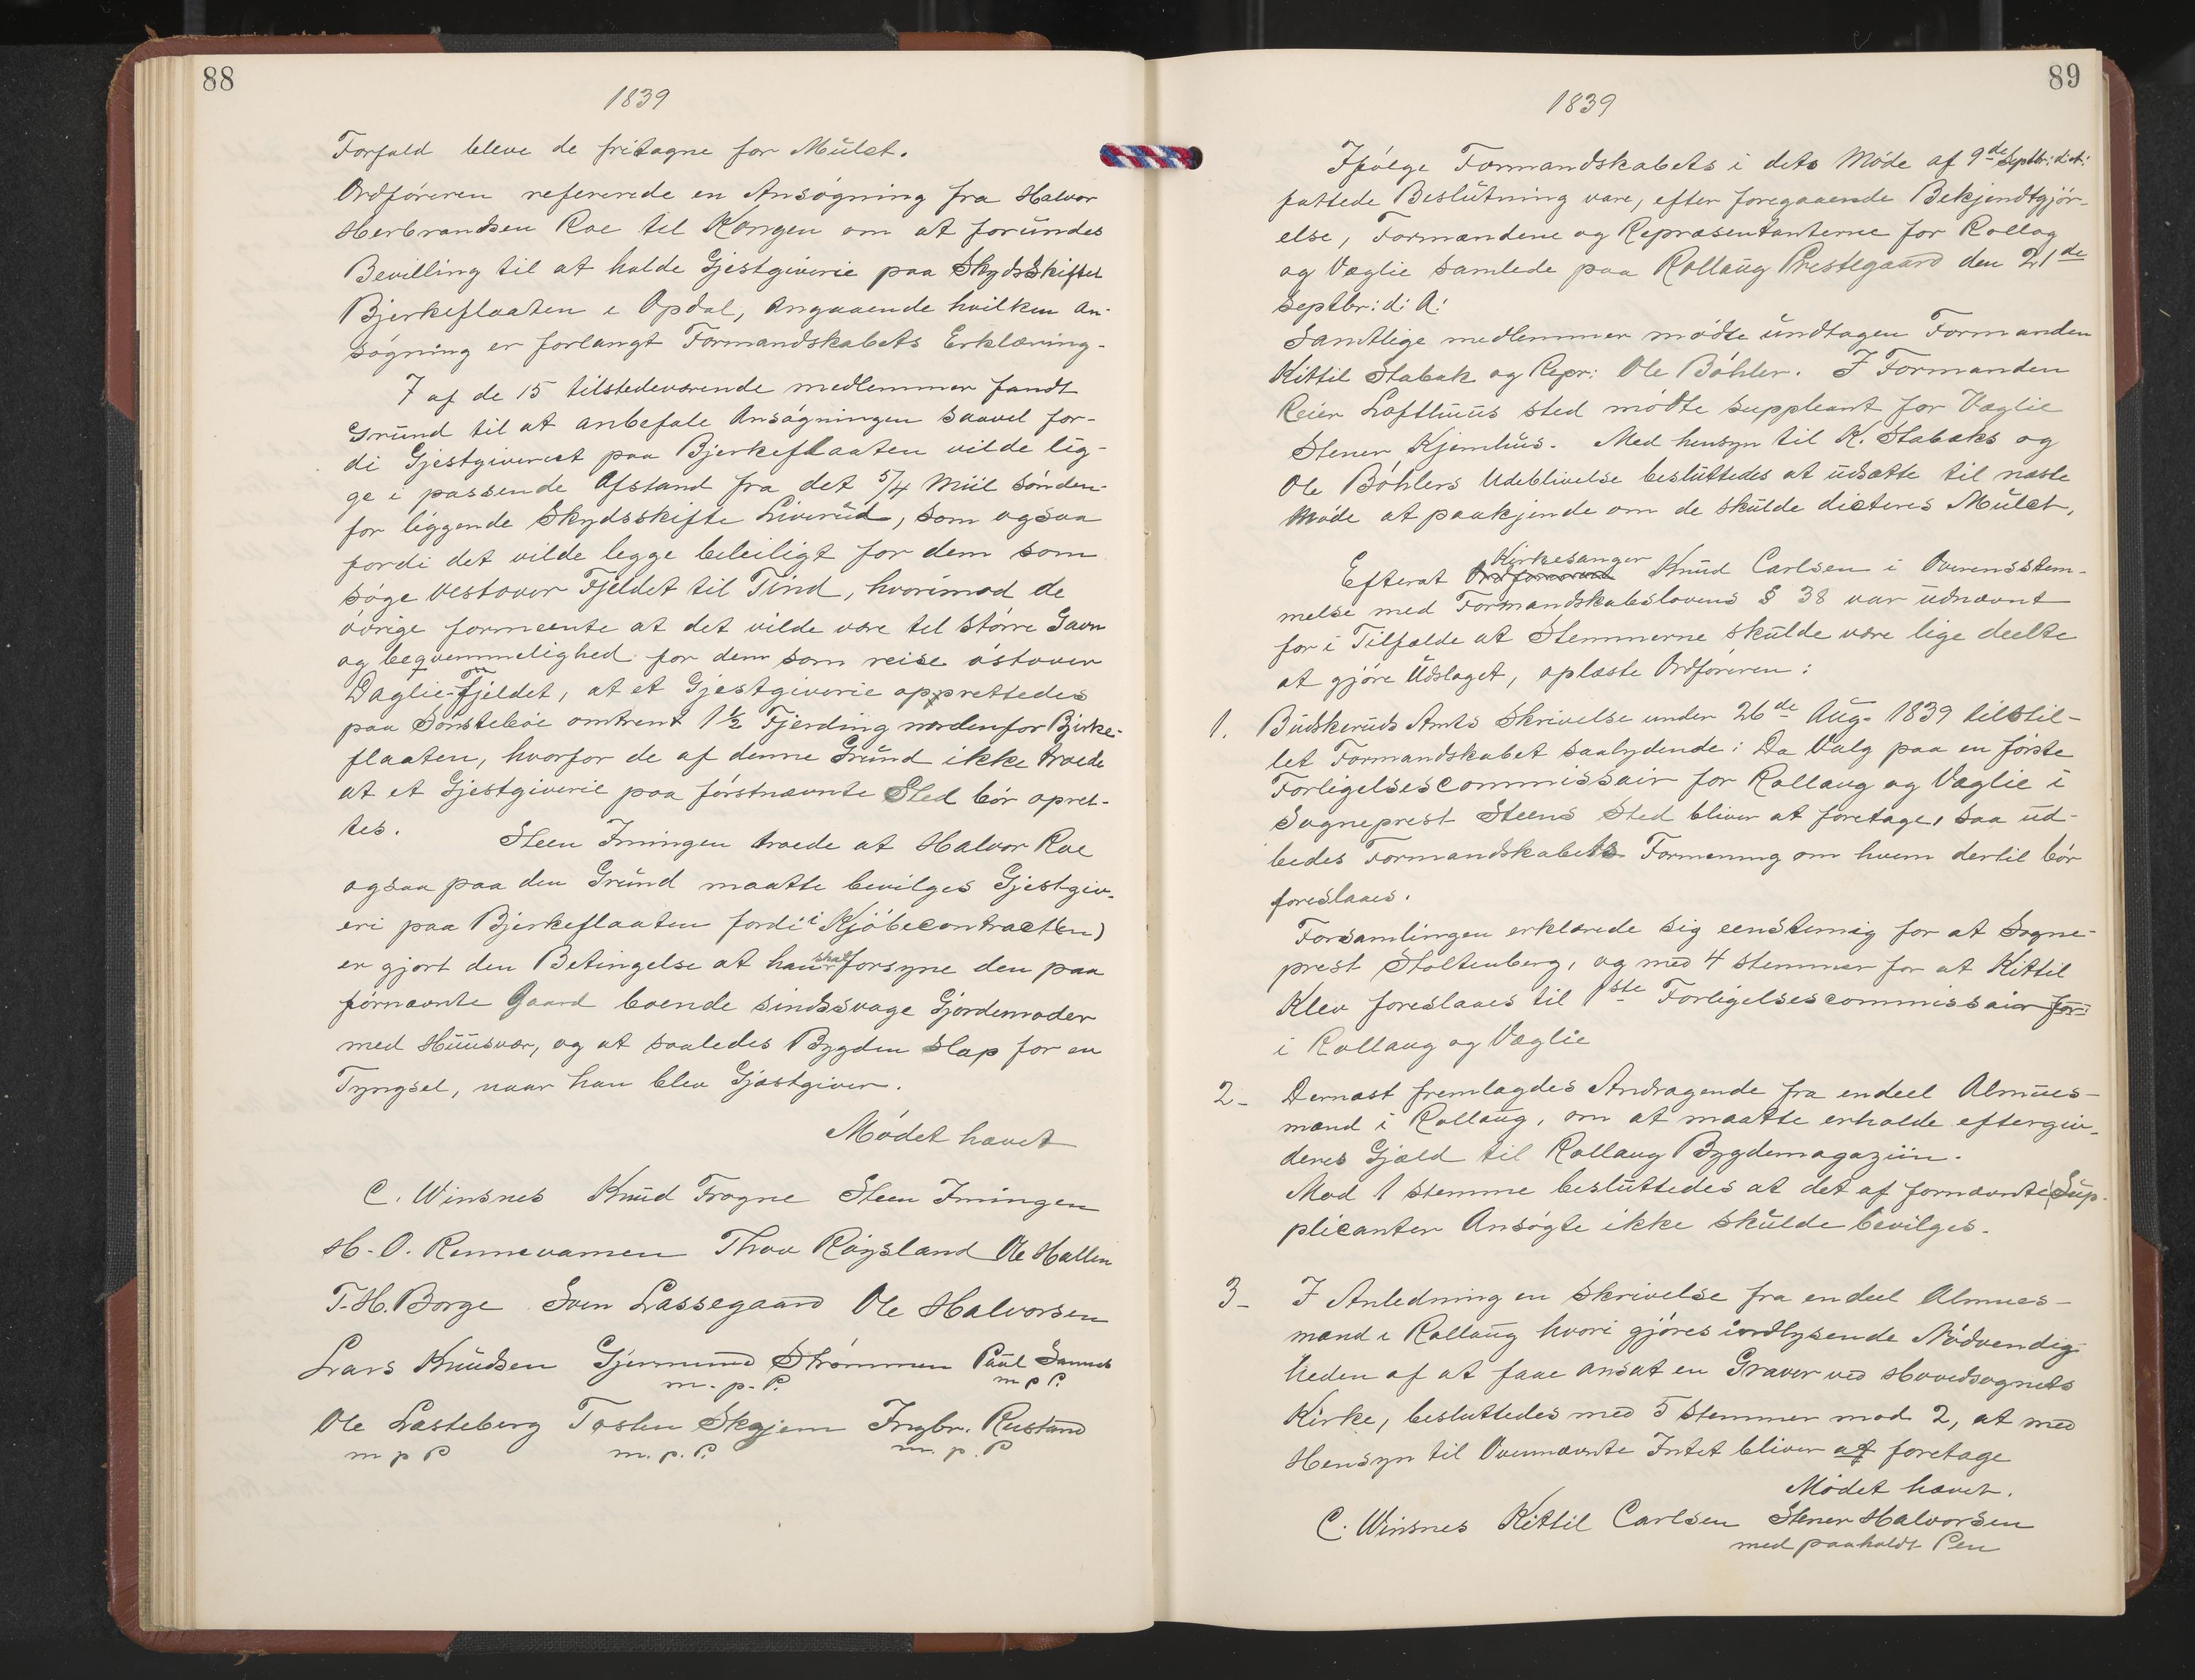 88
1839
Forfald bleve de fritagne for Mulct.
Ordföreren refererede en Ansøgning fra Halvor
Herbrandsen Roe til Kongen om at forundes
Bevilling til at holde Gjestgiverie paa Skydsskiftet
Bjerkeflaaten i Opdal, angaaende hvilken An-
søgning er forlangt Formandskabets Erklæring.
7 af de 15 tilstedeværende medlemmer fandt
Grund til at anbefale Ansøgningen saavel for-
di Gjestgiveriet paa Bjerkeflaaten vilde lig-
ge i passende Afstand fra det 5/4 Miil sönden-
for liggende Skydsskifte Liverud, som ogsaa
fordi det vilde legge beleiligt for dem som
søge vestover Fjeldet til Tind, hvorimod de
övrige formeente at det vilde være til större Gavn
og beqvemmelighed for dem som reise östover
Daglie-Fjeldet, at et Gjestgiverie opprettedes
paa Sönsteböe omtrent 1½ Fjerding nordenfor Bjerke-
flaaten, hvorfor de af denne Grund ikke troede
at et Gjestgiverie paa förstnævnte Sted bör opret-
tes.
Steen Imingen troede at Halvor Roe
ogsaa paa den Grund maatte bevilges Gjestgiv-
eri paa Bjerkeflaaten fordi i Kjöbecontracten)
er gjort den Betingelse at han skal forsyne den paa
förnævnte Gaard boende sindssvage Gjordemoder
med Huusvær, og at saaledes Bygden slap for en
Tyngsel, naar han blev Gjæstgiver.
Mödet hævet
C. Winsnes Knud Frogne Steen Imingen
H. O. Rennevamen Thov Röysland Ole Hallen
T. H. Borge Sven Lassegaard Ole Halvorsen
Lars Knudsen Gjermund Strömmen Paul Sannes
m. p. P. m p P.
Ole Lasteberg Tosten Skjem Ingbr. Rustand
m p P m. p. P. m. p. P
89
1839
Ifölge Formandskabets i dets Möde af 9de Septbr: d: A:
fattede Beslutning vare, efter foregaaende Bekjendtgjör-
else, Formændene og Repræsentanterne for Rollag
og Væglie samlede paa Rollaug Prestegaard den 21de
Septbr: d: A:
Samtlige medlemmer mödte undtagen Formanden
Kittil Stabæk og Repr: Ole Böhler. I Formanden
Reier Lofthuus sted mödte suppleant for Væglie
Stener Kjemhus. Med hensyn til K. Stabæks og
Ole Böhlers Udeblivelse besluttedes at udsætte til næste
Möde at paakjende om de skulde dicteres Mulct.
Efterat Kirkesanger Knud Carlsen i Overensstem-
melse med Formandskabslovens § 38 var udnævnt
for i Tilfælde at Stemmerne skulde være lige deelte
at gjöre Udslaget, oplæste Ordföreren:
1. Buskeruds Amts Skrivelse under 26de Aug. 1839 tilstil-
let Formandskabet saalydende: Da Valg paa en förste
Forligelsescommissair for Rollaug og Væglie i
Sogneprest Steens Sted bliver at foretage, saa ud-
bedes Formandskabets Formening om hvem dertil bör
foreslaaes.
Forsamlingen erklærede sig eenstemig for at Sogne-
prest Stoltenberg, og med 4 stemmer for at Kittil
Klev foreslaaes til 1ste Forligelsescommissair for
i Rollaug og Væglie
2- Dernæst fremlagdes Andragende fra endeel Almues-
mænd i Rollaug, om at maatte erholde eftergiv-
deres Gjæld til Rollaug Bygdemagaziin.
Mod 1 stemme besluttedes at det af fornævnte Sup-
plicanter Ansøgte ikke skulde bevilges.
3- I Anledning en Skrivelse fra endeel Almues-
mænd i Rollaug hvori gjöres indlysende Nödvendig-
heden af at faae ansat en Graver ved Hovedsognets
Kirke, besluttedes med 5 Stemmer mod 2, at med
Hensyn til Ovennævnte Intet bliver at foretage
Mödet hævet.
C. Winsnes Kittil Carlsen Stener Halvorsen
med paaholdt Pen